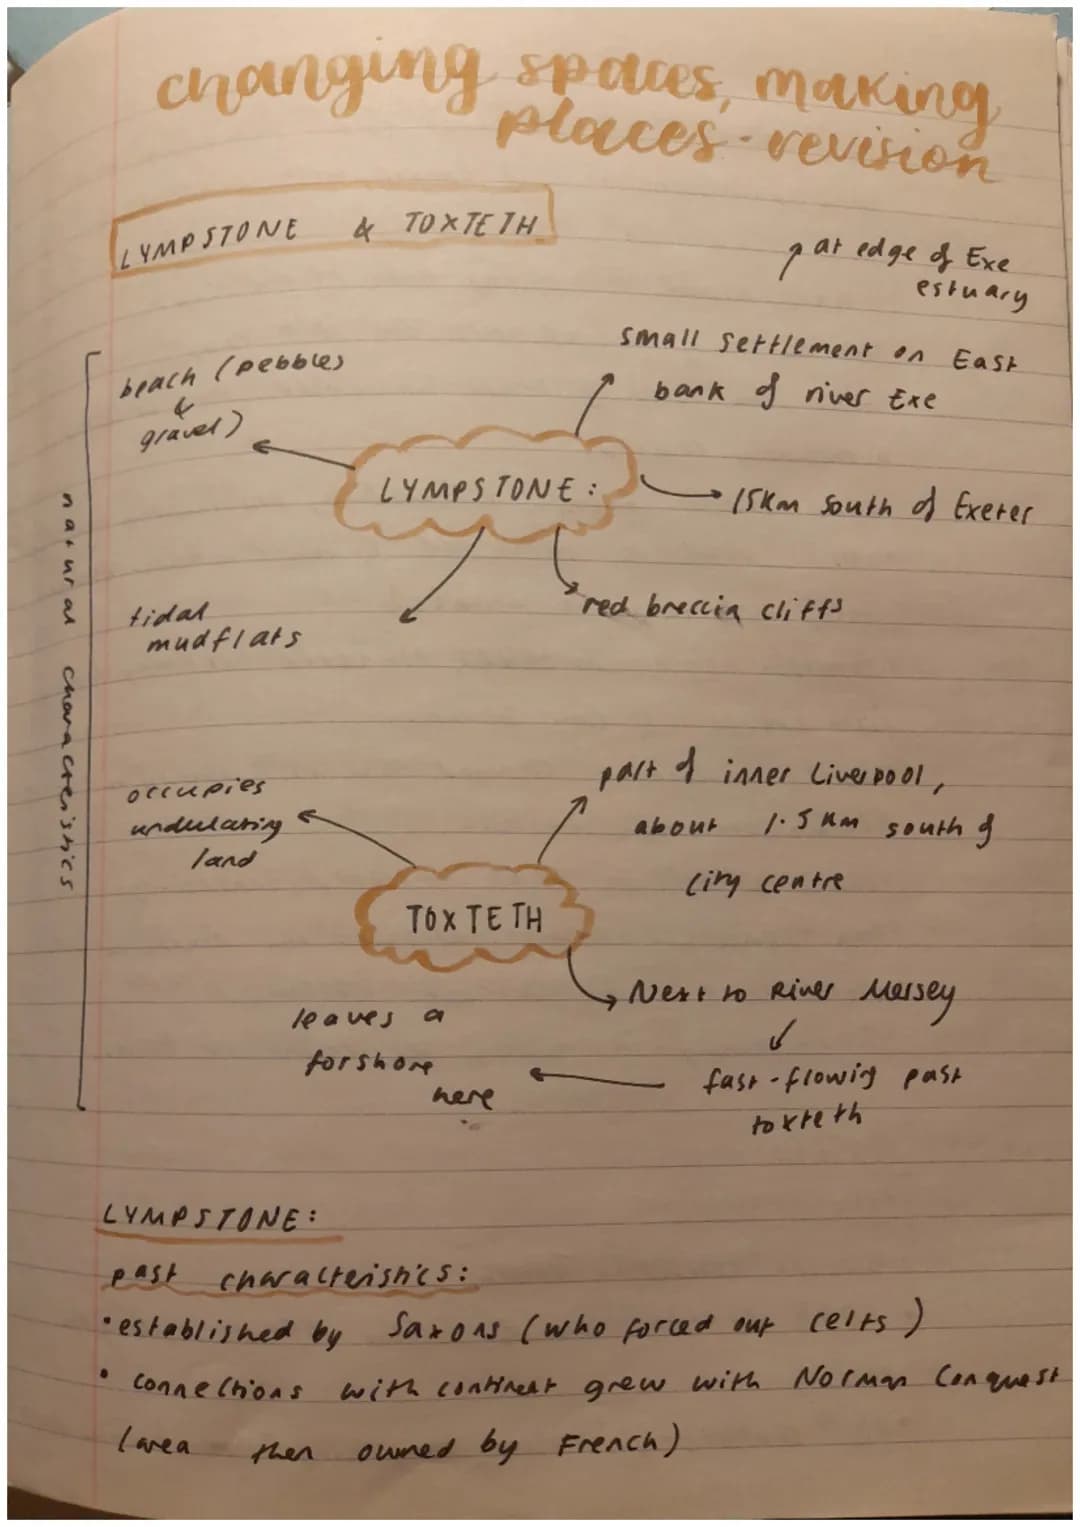 changing spaces, making
places - revision
LYMPSTONE & TOXTETH
at edge of Exe
estuary
small settlement on East
bank of river Exe
beach (pebbles
&
gravel)
LYMPSTONE:
15km south of Exeter
red breccia cliffs
tidal
mudflats
natural characteristics
part of inner Liverpool,
about 1.5 km south of
city centre
occupies
undulating
land
TOXTETH
Next to River Mersey
fast-flowing past
toxteth
leaves a
forshore
here
LYMPSTONE:
past characteristics:
• established by Saxons (who forced out celts)
• connections with continent grew with Norman Conquest
(area then owned by French)